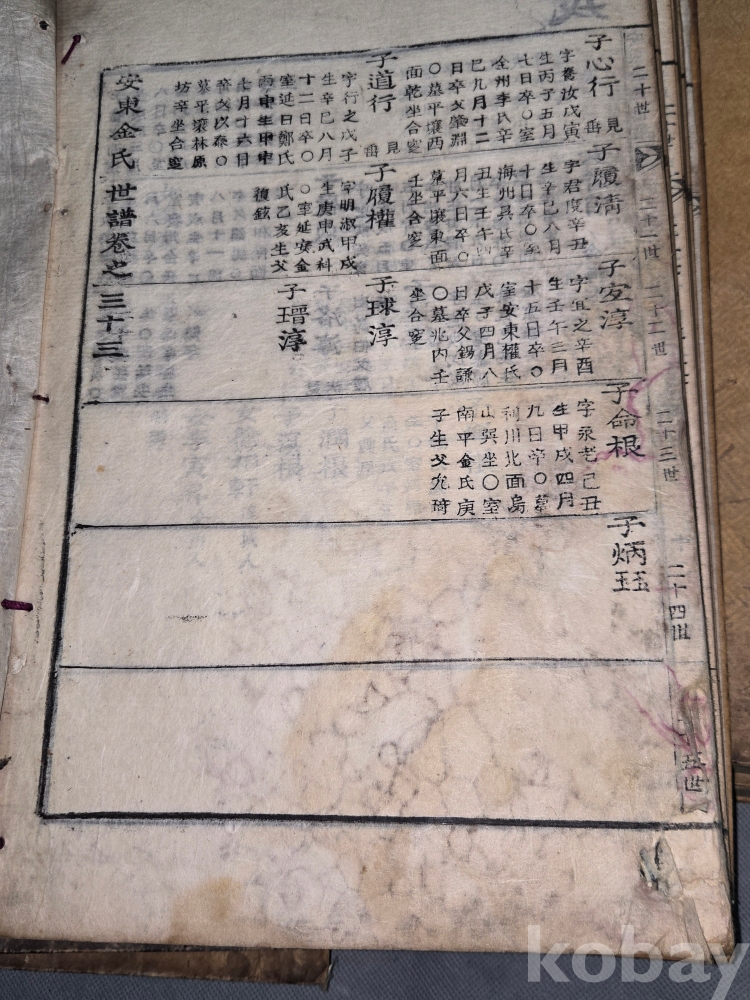 二十世
二十一世
二十二世
二十三世
二十四世
五世
子心行
見
字喬汝戊寅
生丙子五月
七日卒〇室
全州李氏辛
巳九月十二
日卒父榮淵
〇墓平壤西
面乾坐合窆
子道行
見
字行之戊子
生辛巳八月
十二日卒〇
室延日鄭氏
丙申生甲申
七月十六日
卒父以泰〇
墓平壤林原
坊辛坐合窆
子履淸
字君度辛丑
生辛巳八月
十日卒〇室
海州吳氏辛
丑生壬午四
月六日卒〇
墓平壤東面
壬坐合窆
子履權
字明淑甲戌
生庚申武科
〇室延安金
氏乙亥生父
復鉉
子安淳
字宜之辛酉
生壬午三月
十五日卒〇
室安東權氏
戊子四月八
日卒父錫謙
〇墓兆內壬
坐合窆
子球淳
子瑨淳
子命根
字永老己丑
生甲戌四月
九日卒〇墓
利川北面烏
山巽坐〇室
南平金氏庚
子生父允琦
子炳玨
安東金氏世譜卷之三十三
kobay